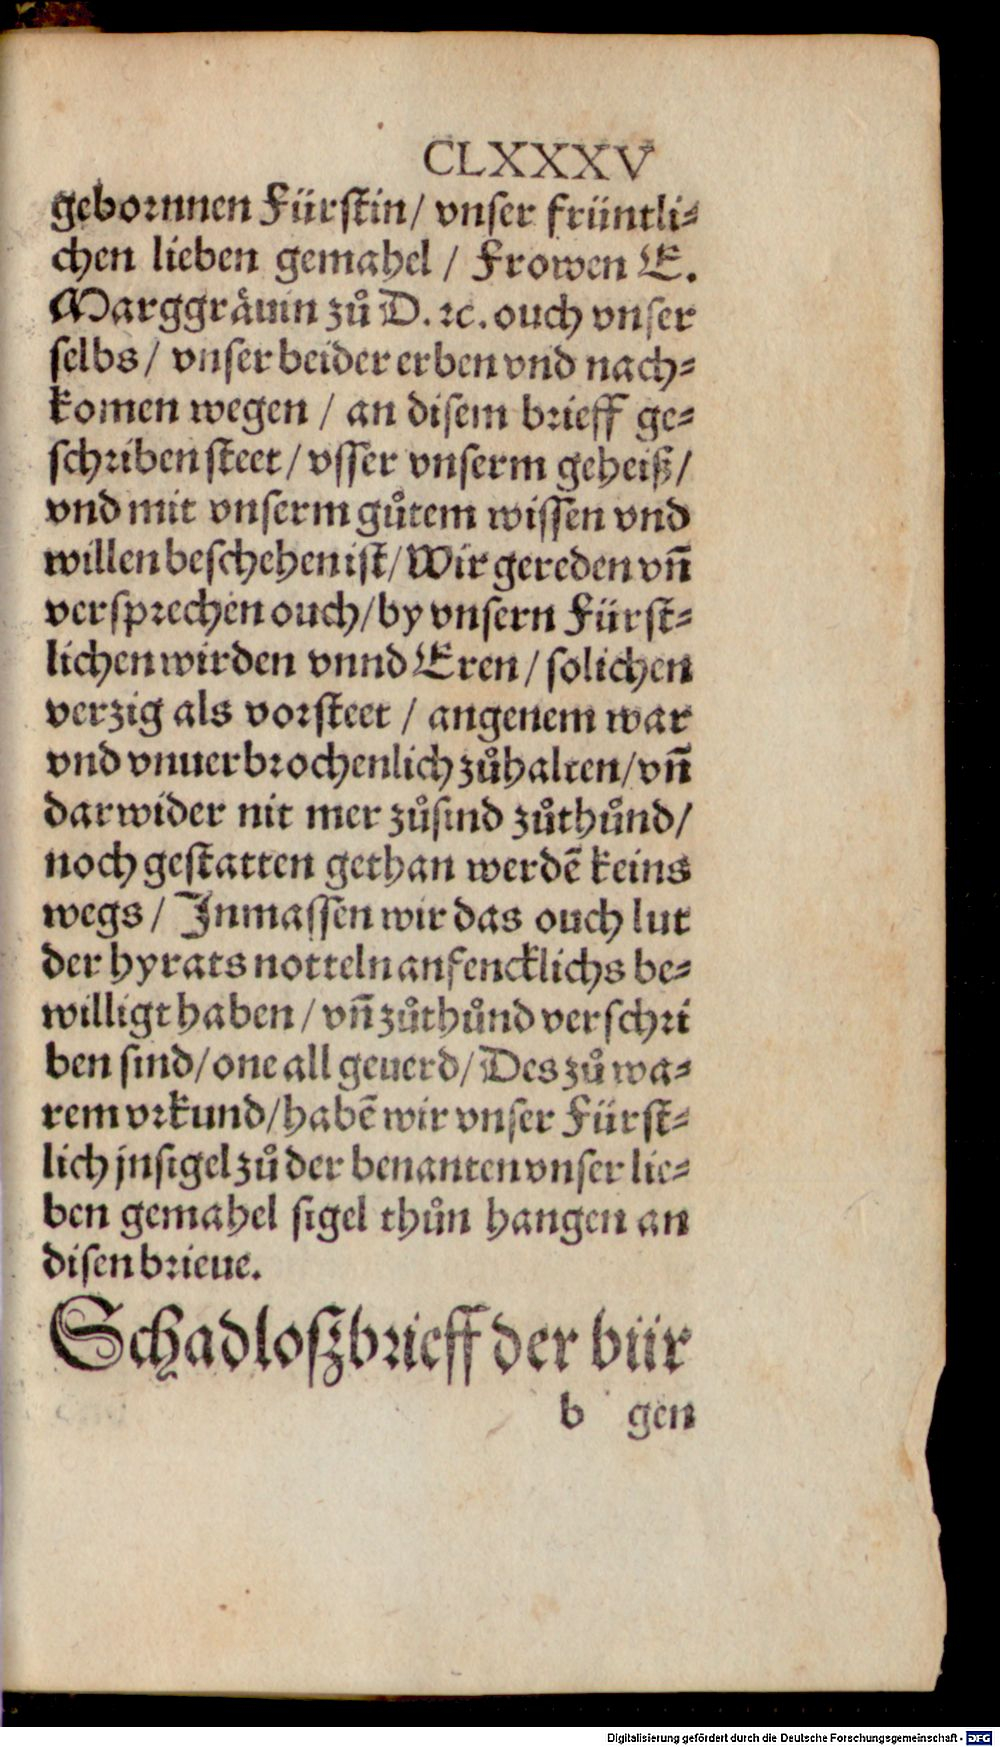 CLXXXV
gebornnen Fürstin/ vnser früntli-
chen lieben gemahel / Frowen E.
Marggräuin zů D. ꝛc. ouch vnser
selbs/ vnser beider erben vnd nach-
komen wegen / an disem brieff ge-
schriben steet/ vsser vnserm geheiß/
vnd mit vnserm gůtem wissen vnd
willen beschehen ist/ Wir gereden vn̄
versprechen ouch/ by vnsern Fürst-
lichen wirden vnnd Eren/ solichen
verzig als vorsteet / angenem war
vnd vnuerbrochenlich zůhalten/ vn̄
darwider nit mer zůsind zůthůnd/
noch gestatten gethan werdē keins
wegs/ Inmassen wir das ouch lut
der hyrats notteln anfencklichs be-
willigt haben/ vn̄ zůthůnd verschri
ben sind/ one all geuerd/ Des zů wa-
rem vrkund/ habē wir vnser Fürst-
lich jnsigel zů der benanten vnser lie-
ben gemahel sigel thůn hangen an
disen brieue.
Schadloszbrieff der bür
b gen
Digitalisierung gefördert durch die Deutsche Forschungsgemeinschaft - DFG